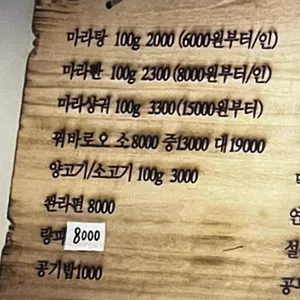 마라탕 100g 2000 (6000원부터/인)
마라판 100g 2300 (8000원부터/인)
마라샹궈 100g 3300 (15000원부터)
꿔바로오 소8000 중13000 대19000
양고기/소고기 100g 3000
완라면 8000
량피 8000
공기밥1000
절
공